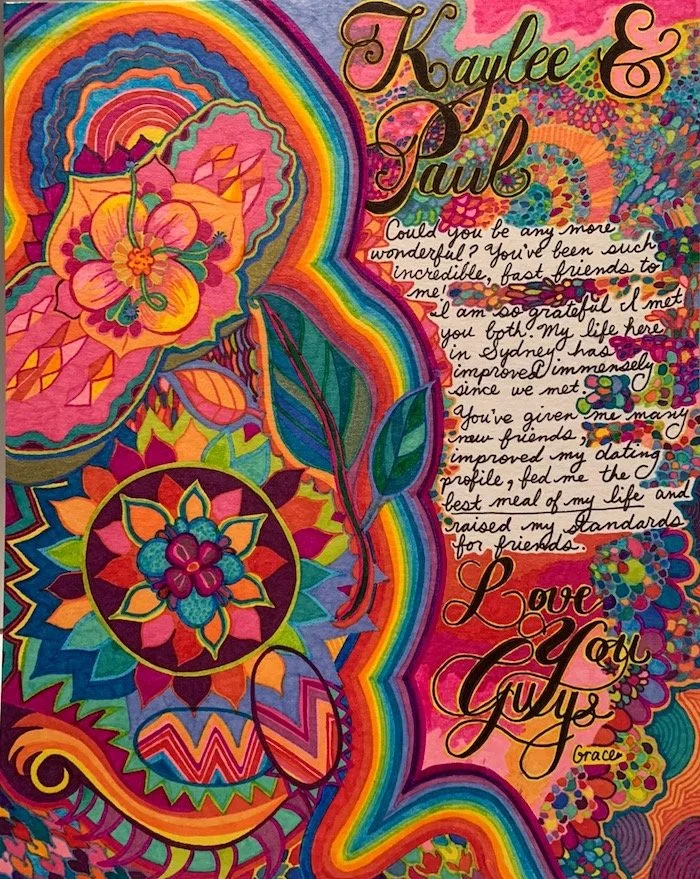 Kaylee &
Paul
Could you be any more
wonderful? You've been such
incredible, fast friends to
me!
I am so grateful I met
you both. My life here
in Sydney has
improved immensely
since we met.
You've given me many
new friends,
improved my dating
profile, fed me the
best meal of my life and
raised my standards
for friends.
Love
You
Guys
Grace